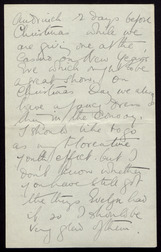 2 days before
Christmas while we
are giving one at the
Casino on New Years
Eve which might be
a great show, on
Christmas Day we
have a fancy dress
in the
I should like to go
as my
Youth effect but I
don't know whether
you have still got
the things Evelyn had
if so I should be
very glad of them